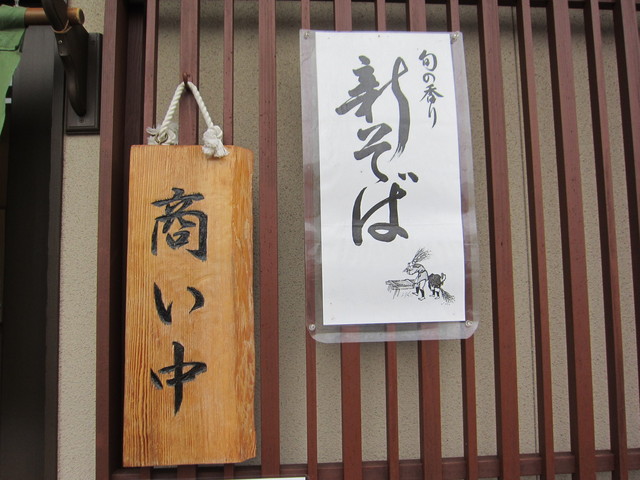 旬の香り
新そば
商い中